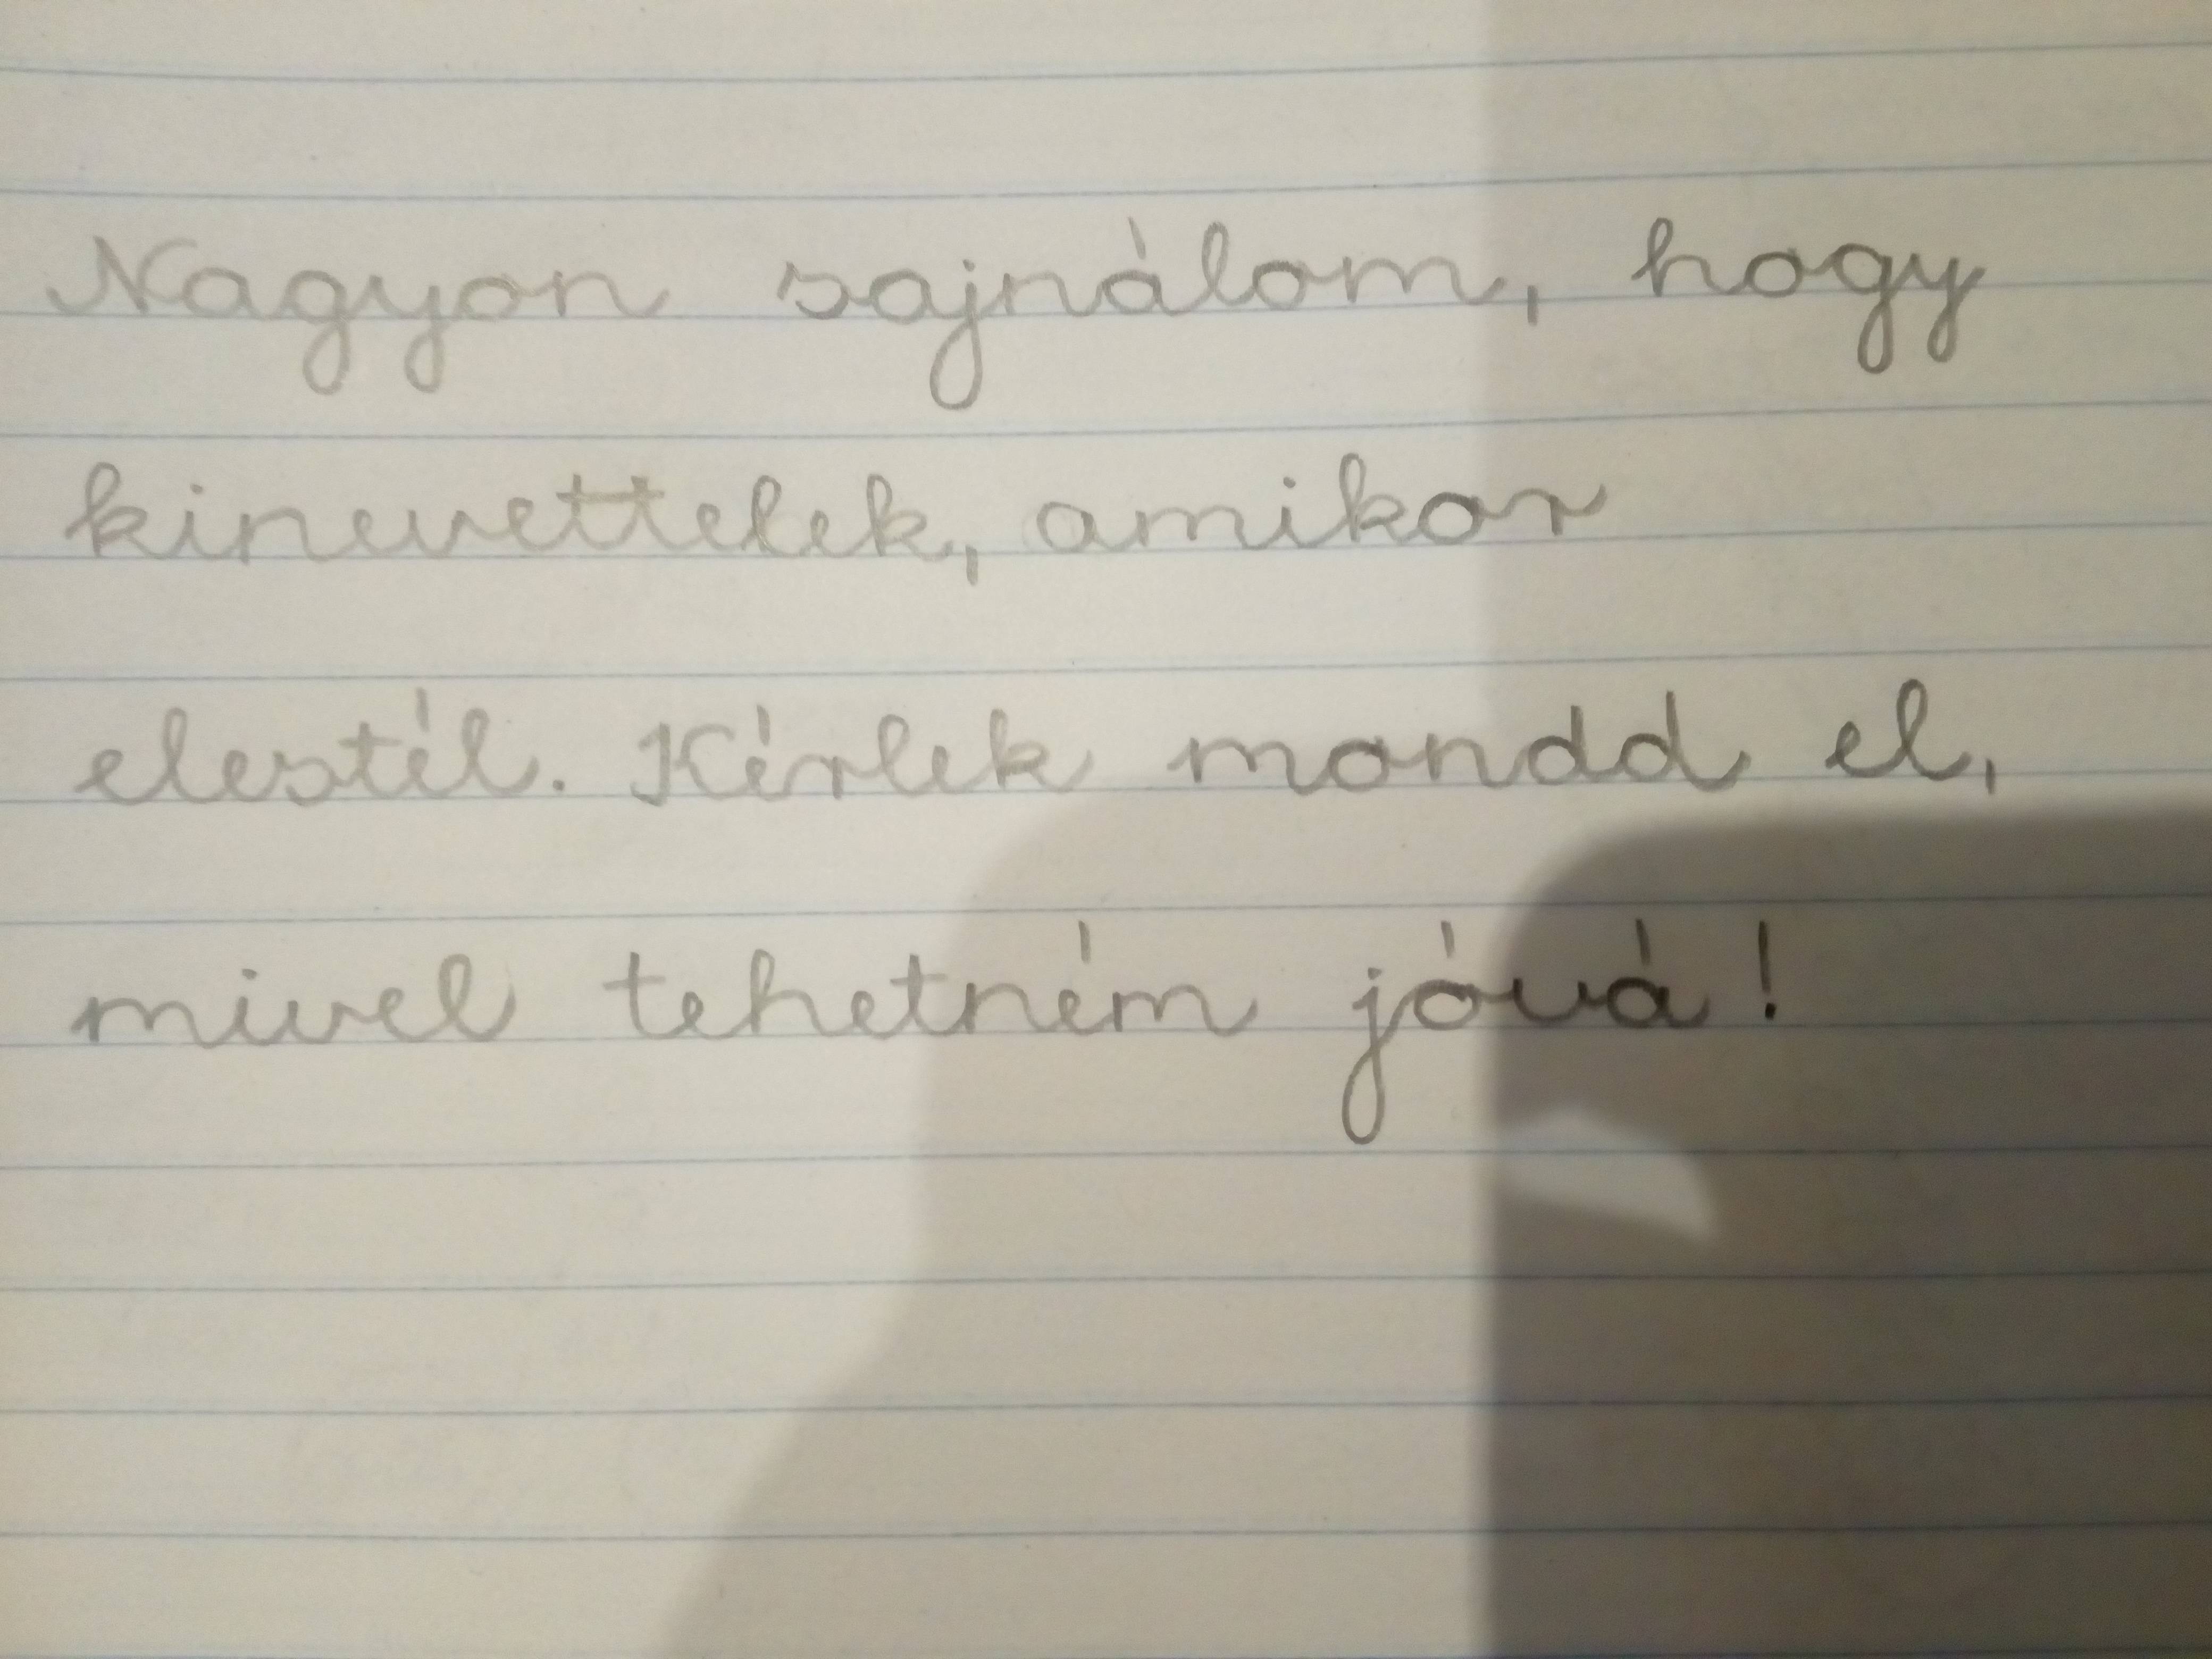 Nagyon sajnálom, hogy
kinevettelek, amikor
elestél. Kérlek mondd el,
mivel tehetném jóvá!